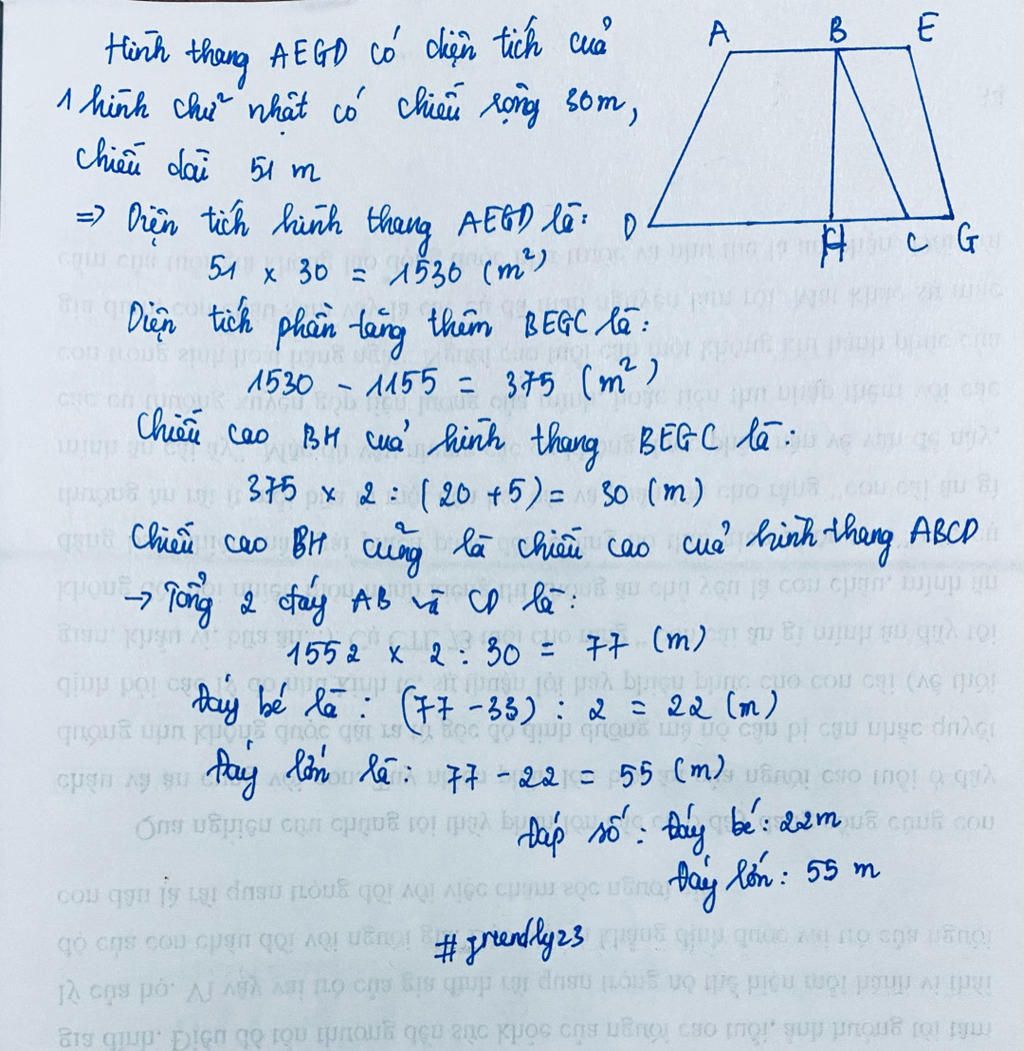 Hình thang AEGD có diện tích của
1 hình chữ nhật có chiều rộng 30m,
chiều dài 51 m
=> Diện tích hình thang AEGD là:
51 x 30 = 1530 (m²)
Diện tích phần tăng thêm BEGC là:
1530 - 1155 = 375 (m²)
Chiều cao BH của hình thang BEGC là:
375 x 2 : (20 + 5) = 30 (m)
Chiều cao BH cũng là chiều cao của hình thang ABCD
→ Tổng 2 đáy AB và CD là:
1552 x 2 : 30 = 77 (m)
Đáy bé là: (77 - 33) : 2 = 22 (m)
Đáy lớn là: 77 - 22 = 55 (m)
Đáp số: Đáy bé: 22m
Đáy lớn: 55 m
#friendly23
A B E
D H C G